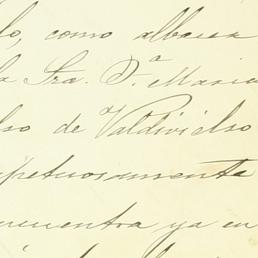 lo, como albacea
la Sra. D.ª Maria
lso de Valdivielso
petuosamente
ncuentra ya en